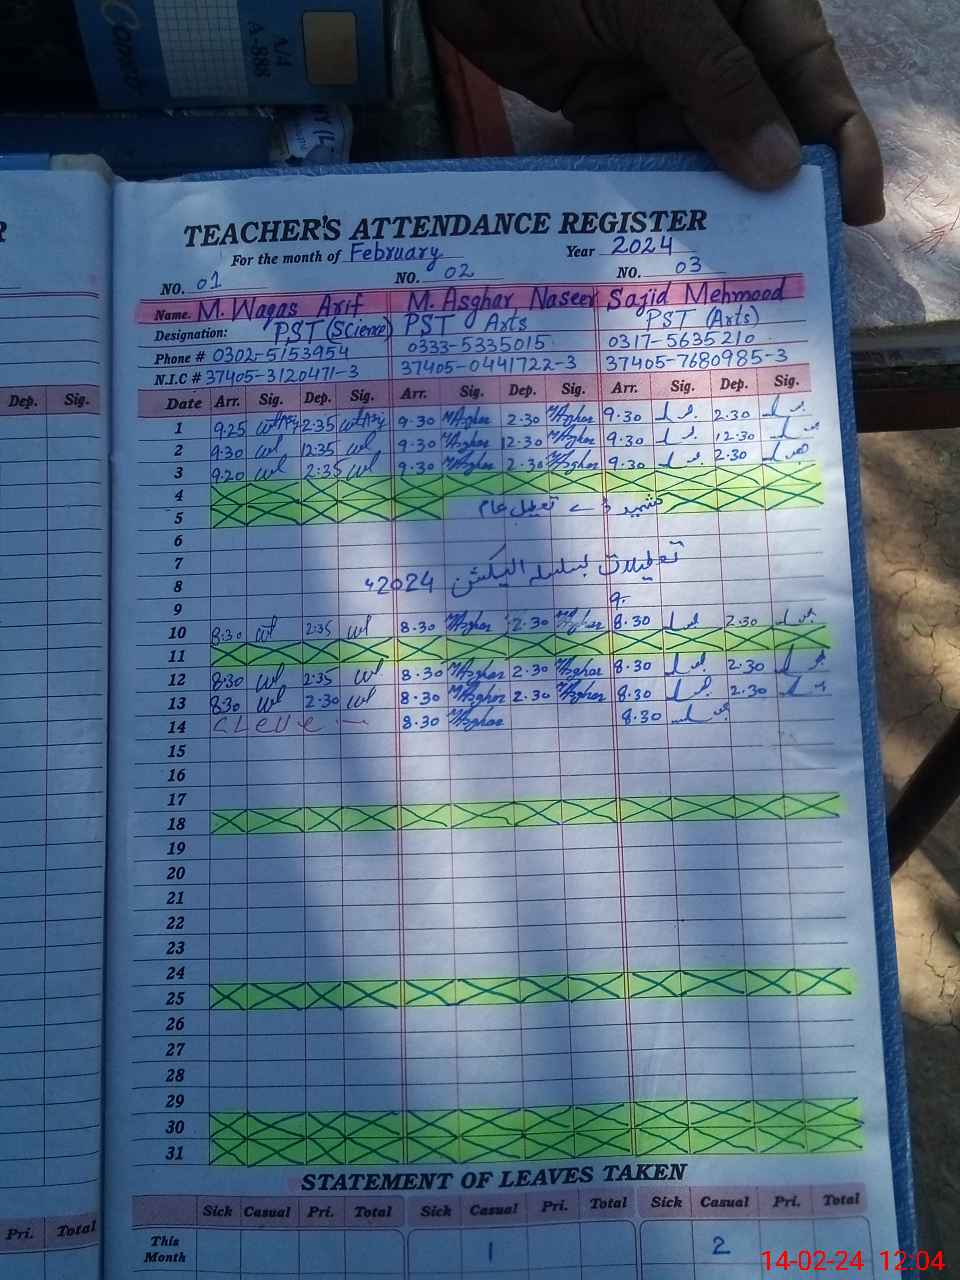 TEACHER'S ATTENDANCE REGISTER
For the month of February Year 2024
NO. 01 NO. 02 NO. 03
Name. M. Waqas Arif M. Asghar Naseer Sajid Mehmood
Designation: PST (Science) PST Arts PST (Arts)
Phone # 0302-5153954 0333-5335015 0317-5635210
N.I.C # 37405-3120471-3 37405-0441722-3 37405-7680985-3
Dep. Sig. Date Arr. Sig. Dep. Sig. Arr. Sig. Dep. Sig. Arr. Sig. Dep. Sig.
1 9.25 2:35 9.30 MAsghar 2.30 MAsghar 9.30 2.30
2 9:30 12:35 9.30 MAsghar 12.30 MAsghar 9.30 12.30
3 9:20 2:35 9.30 MAsghar 2.30 MAsghar 9.30 2.30
4
5 کشمیر ڈے تعطیل عام
6
7 تعطیلات بسلسلہ الیکشن 2024ء
8
9 9.
10 8:30 2:35 8.30 MAsghar 2.30 MAsghar 8.30 2.30
11
12 8:30 2:35 8.30 MAsghar 2.30 MAsghar 8.30 2.30
13 8:30 2:30 8.30 MAsghar 2.30 MAsghar 8.30 2.30
14 8.30 MAsghar 8.30
15
16
17
18
19
20
21
22
23
24
25
26
27
28
29
30
31
STATEMENT OF LEAVES TAKEN
Pri. Total Sick Casual Pri. Total Sick Casual Pri. Total Sick Casual Pri. Total
This Month 1 2
14-02-24 12:04